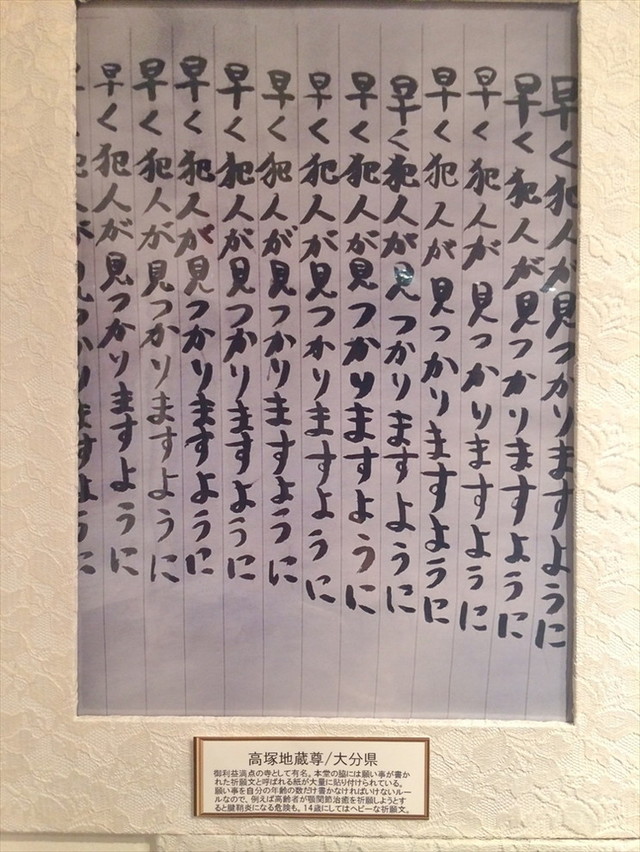 早く犯人が見つかりますように
早く犯人が見つかりますように
早く犯人が見つかりますように
早く犯人が見つかりますように
早く犯人が見つかりますように
早く犯人が見つかりますように
早く犯人が見つかりますように
早く犯人が見つかりますように
早く犯人が見つかりますように
早く犯人が見つかりますように
早く犯人が見つかりますように
早く犯人が見つかりますように
早く犯人が見つかりますように
高塚地蔵尊/大分県
御利益満点の寺として有名。本堂の脇には願い事が書か
れた祈願文と呼ばれる紙が大量に貼り付けられている。
願い事を自分の年齢の数だけ書かなければいけないルー
ルなので、例えば高齢者が顎関節治癒を祈願しようとす
ると腱鞘炎になる危険も。14歳にしてはヘビーな祈願文。